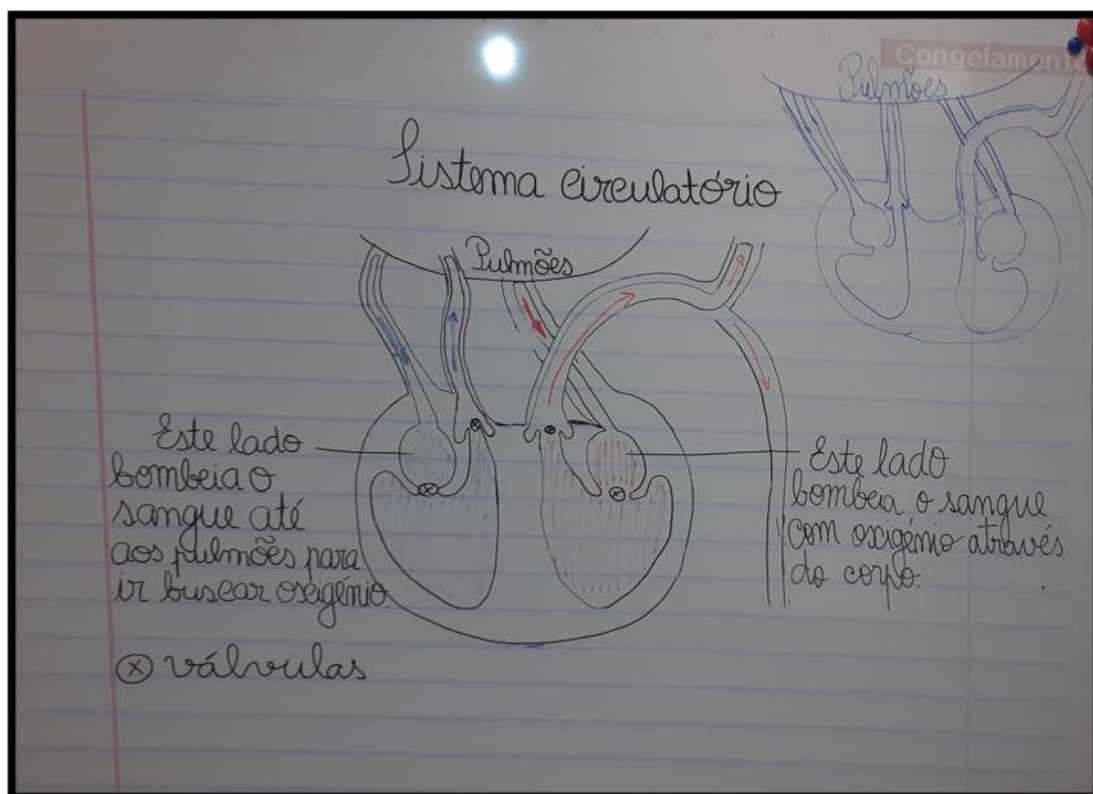 Congelament
Pulmões
Sistema circulatório
Pulmões
Este lado
bombeia o
sangue até
aos pulmões para
ir buscar oxigénio.
Este lado
bombeia o sangue
com oxigénio através
do corpo.
⊗ válvulas